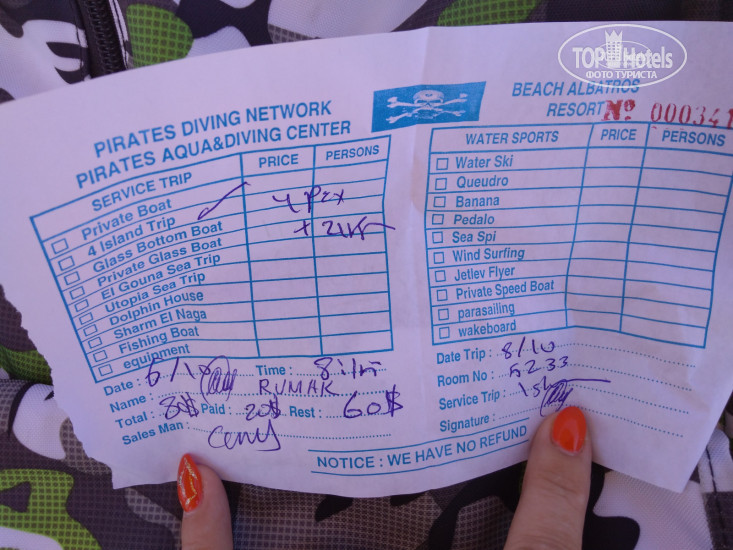 TOPHotels
ФОТО ТУРИСТА
PIRATES DIVING NETWORK
PIRATES AQUA&DIVING CENTER
SERVICE TRIP PRICE PERSONS
Private Boat
4 Island Trip
Glass Bottom Boat
Private Glass Boat
El Gouna Sea Trip
Utopia Sea Trip
Dolphin House
Sharm El Naga
Fishing Boat
equipment
4 pax
+
Date : 6/10 Time : 8:15
Name : RUMAK
Total : 80$ Paid : 20$ Rest : 60$
Sales Man :
BEACH ALBATROS
RESORT
Nº 000341
WATER SPORTS PRICE PERSONS
Water Ski
Queudro
Banana
Pedalo
Sea Spi
Wind Surfing
Jetlev Flyer
Private Speed Boat
parasailing
wakeboard
Date Trip : 8/10
Room No : 5233
Service Trip :
Signature :
NOTICE : WE HAVE NO REFUND